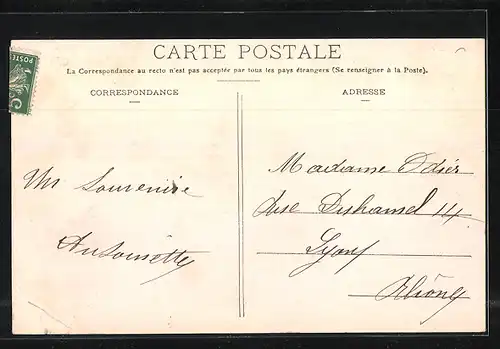 CARTE POSTALE
La Correspondance au recto n'est pas acceptée par tous les pays étrangers (Se renseigner à la Poste).
CORRESPONDANCE
ADRESSE
Un Souvenire
Antoinette
Madame Odier
Duhamel 14
Lyon
Rhône